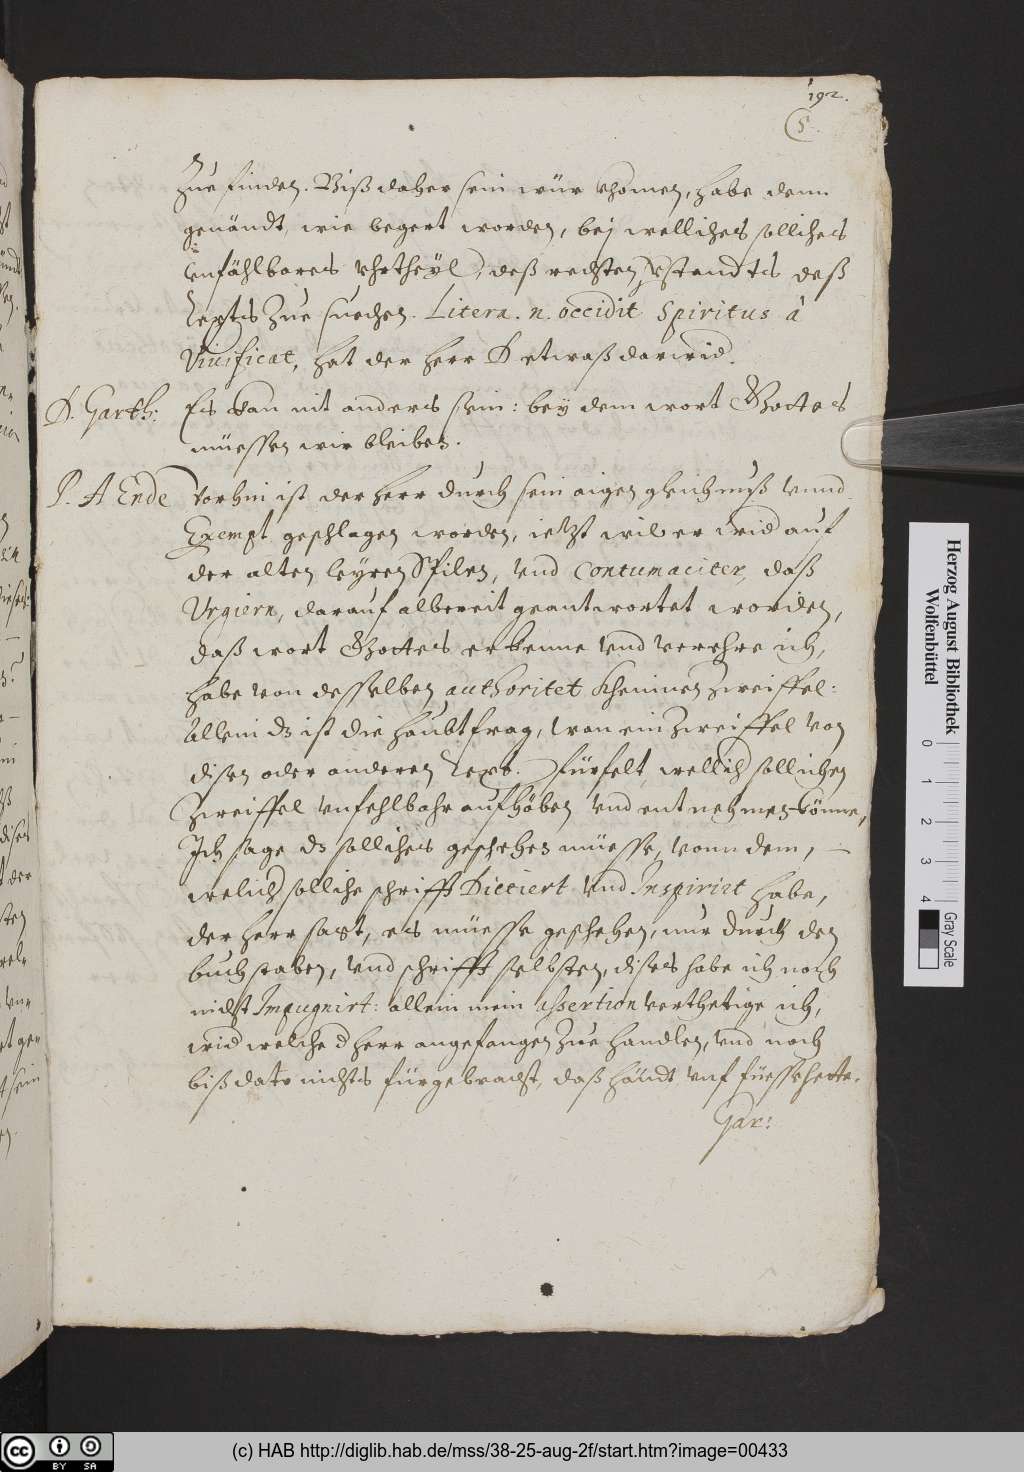 192.
5.
Zue finden. Biß daher sein wür khomen, habe denn
genändt, wie begert worden, bej welliches solliches
unfählbares vhrtheÿl, deß rechten v̄standts deß
Texts Zue suechen. Litera. n. occidit Spiritus á
Viuificat, hat der Herr D. etwaß darwid.
D. Garth: Es kan nit anders sein: beÿ dem wort Gottes
müessen wir bleiben.
P. A Ende Vorhin ist der Herr durch sein aigen gleichnuß vnnd
Exempl geschlagen worden, ietzt wil er wid auf
der alten leÿren Spilen, vnd Contumaciter, daß
Vrgiern, darauf albereit geantwortet worden,
daß wort Gottes erkenne vnd verehre ich,
habe von desselben authoritet kheinnen Zweiffel:
Allein dz ist die haubtfrag, wan ein Zweiffel von
disen oder anderen Text. fürfelt, wellich sollichen
Zweiffel vnfehlbahr aufhöben vnd entnehmen könne,
Ich sage dz solliches geschehen müesse, vonn dem,
welich solliche schrifft Dictiert vnd Inspiriet habe,
der Herr sagt, es müesse geschehen, nur durch den
buchstaben, vnd schrifft selbsten, dises habe ich noch
nicht Impugnirt: allein mein assertion verthetige ich,
wid welche d herr angefangen Zue handlen, vnd noch
biß dato nichts fürgebracht, daß händt vnf füesse hette.
Gar:
Herzog August Bibliothek
Wolfenbüttel
0 1 2 3 4
Gray Scale
cc BY SA
(c) HAB http://diglib.hab.de/mss/38-25-aug-2f/start.htm?image=00433